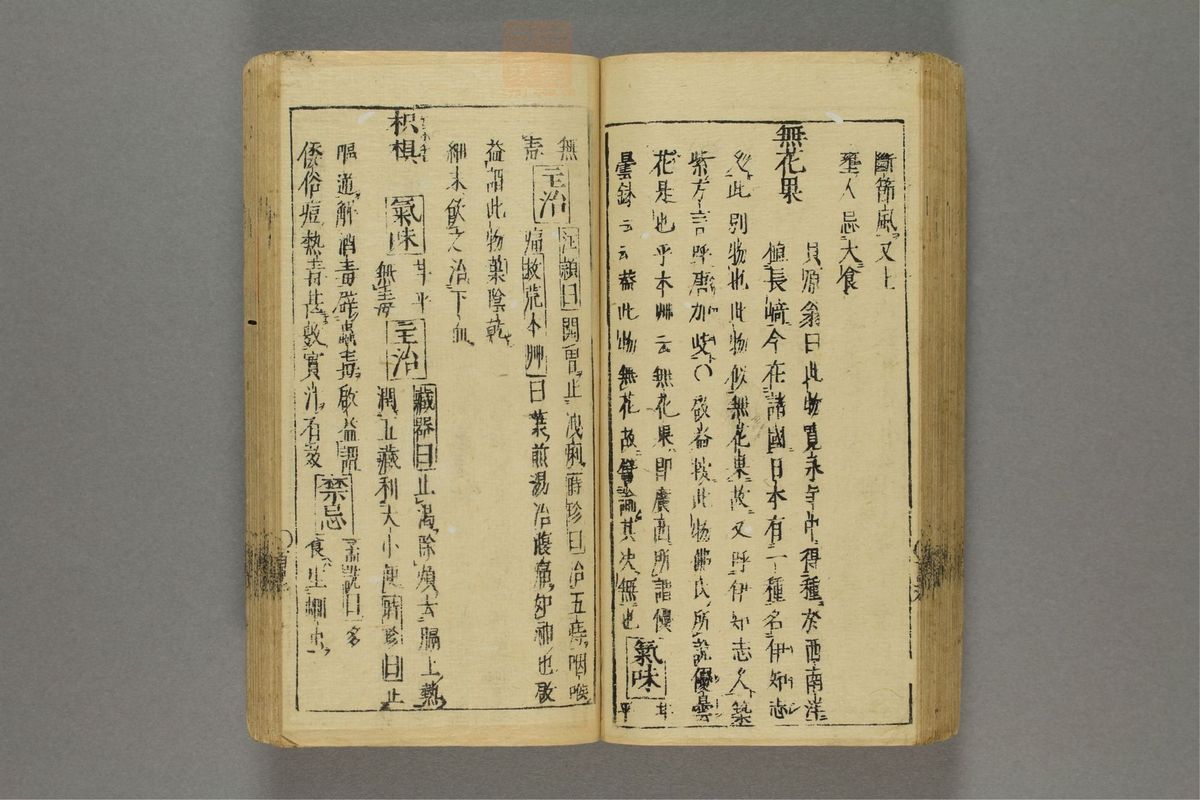 斷節風又上
壅人忌大食
無花果
貝原翁曰此物寛永年中得種於西南洋
植長﨑今在諸國日本有一種名伊知志
久此別物也此物似無花果故又呼伊知志久築
紫方言呼唐加岐〇啟益按此物佛氏所說優曇
花是也乎本艸云無花果即廣西所謂優
曇鉢云云蓋此物無花故譬諭其次無也氣味甘平
無毒主治汪頴曰開胃止洩痢時珍曰治五痔咽喉
痛救荒本艸曰葉煎湯治腹痛如神也啟
益謂此物葉陰乾
細末飲之治下血
枳椇氣味甘平無毒主治藏器曰止渴除煩去膈上熱
潤五藏利大小便時珍曰止
嘔逆解酒毒辟蟲毒啟益謂
倭俗痘熱毒甚數實汁有效禁忌孟詵曰多
食生蚘虫